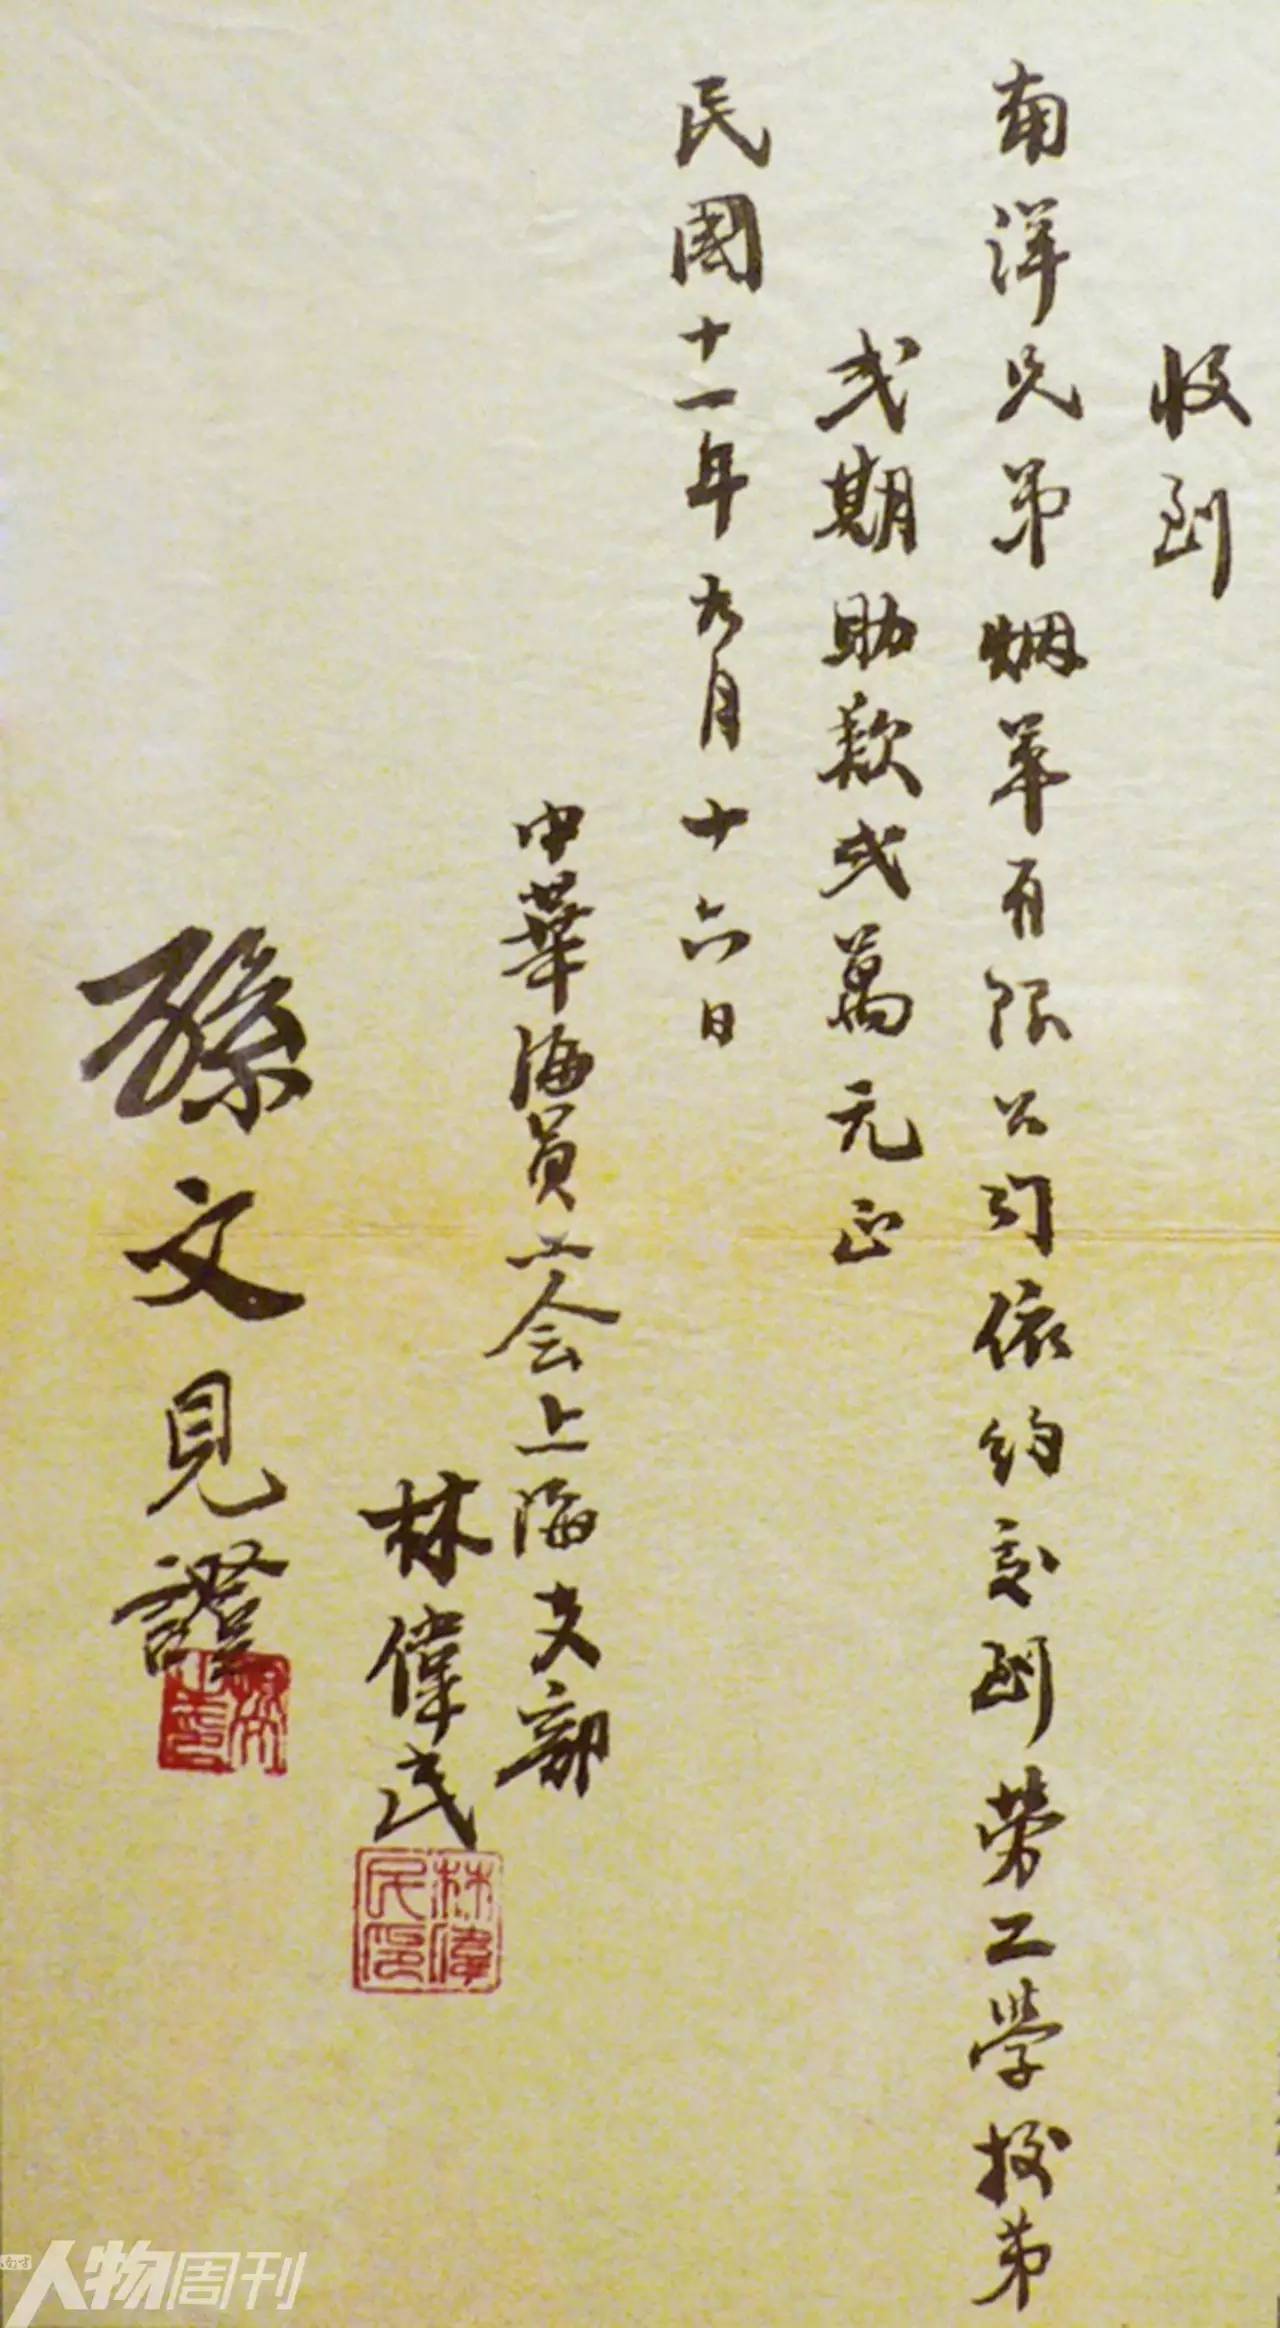 收到
南洋兄弟烟草有限公司依約交到勞工學校第
弍期助款弍萬元正
民國十一年九月十六日
中華海員工会上海支部
林偉民
林偉民印
孫文見證
孫文之印
南方人物周刊